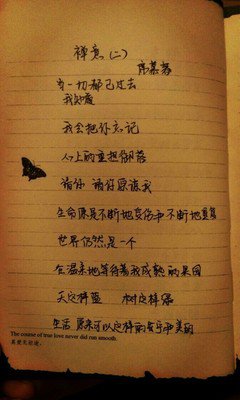 禅意(二)
席慕蓉
当一切都已过去
我知道
我会把你忘记
心上的重担卸落
请你 请你原谅我
生命原是不断地受伤和不断地复原
世界仍然是一个
在温柔地等待着我成熟的果园
天这样蓝 树这样绿
生活 原来可以这样的安宁和美丽
The course of true love never did run smooth.
真爱无坦途。